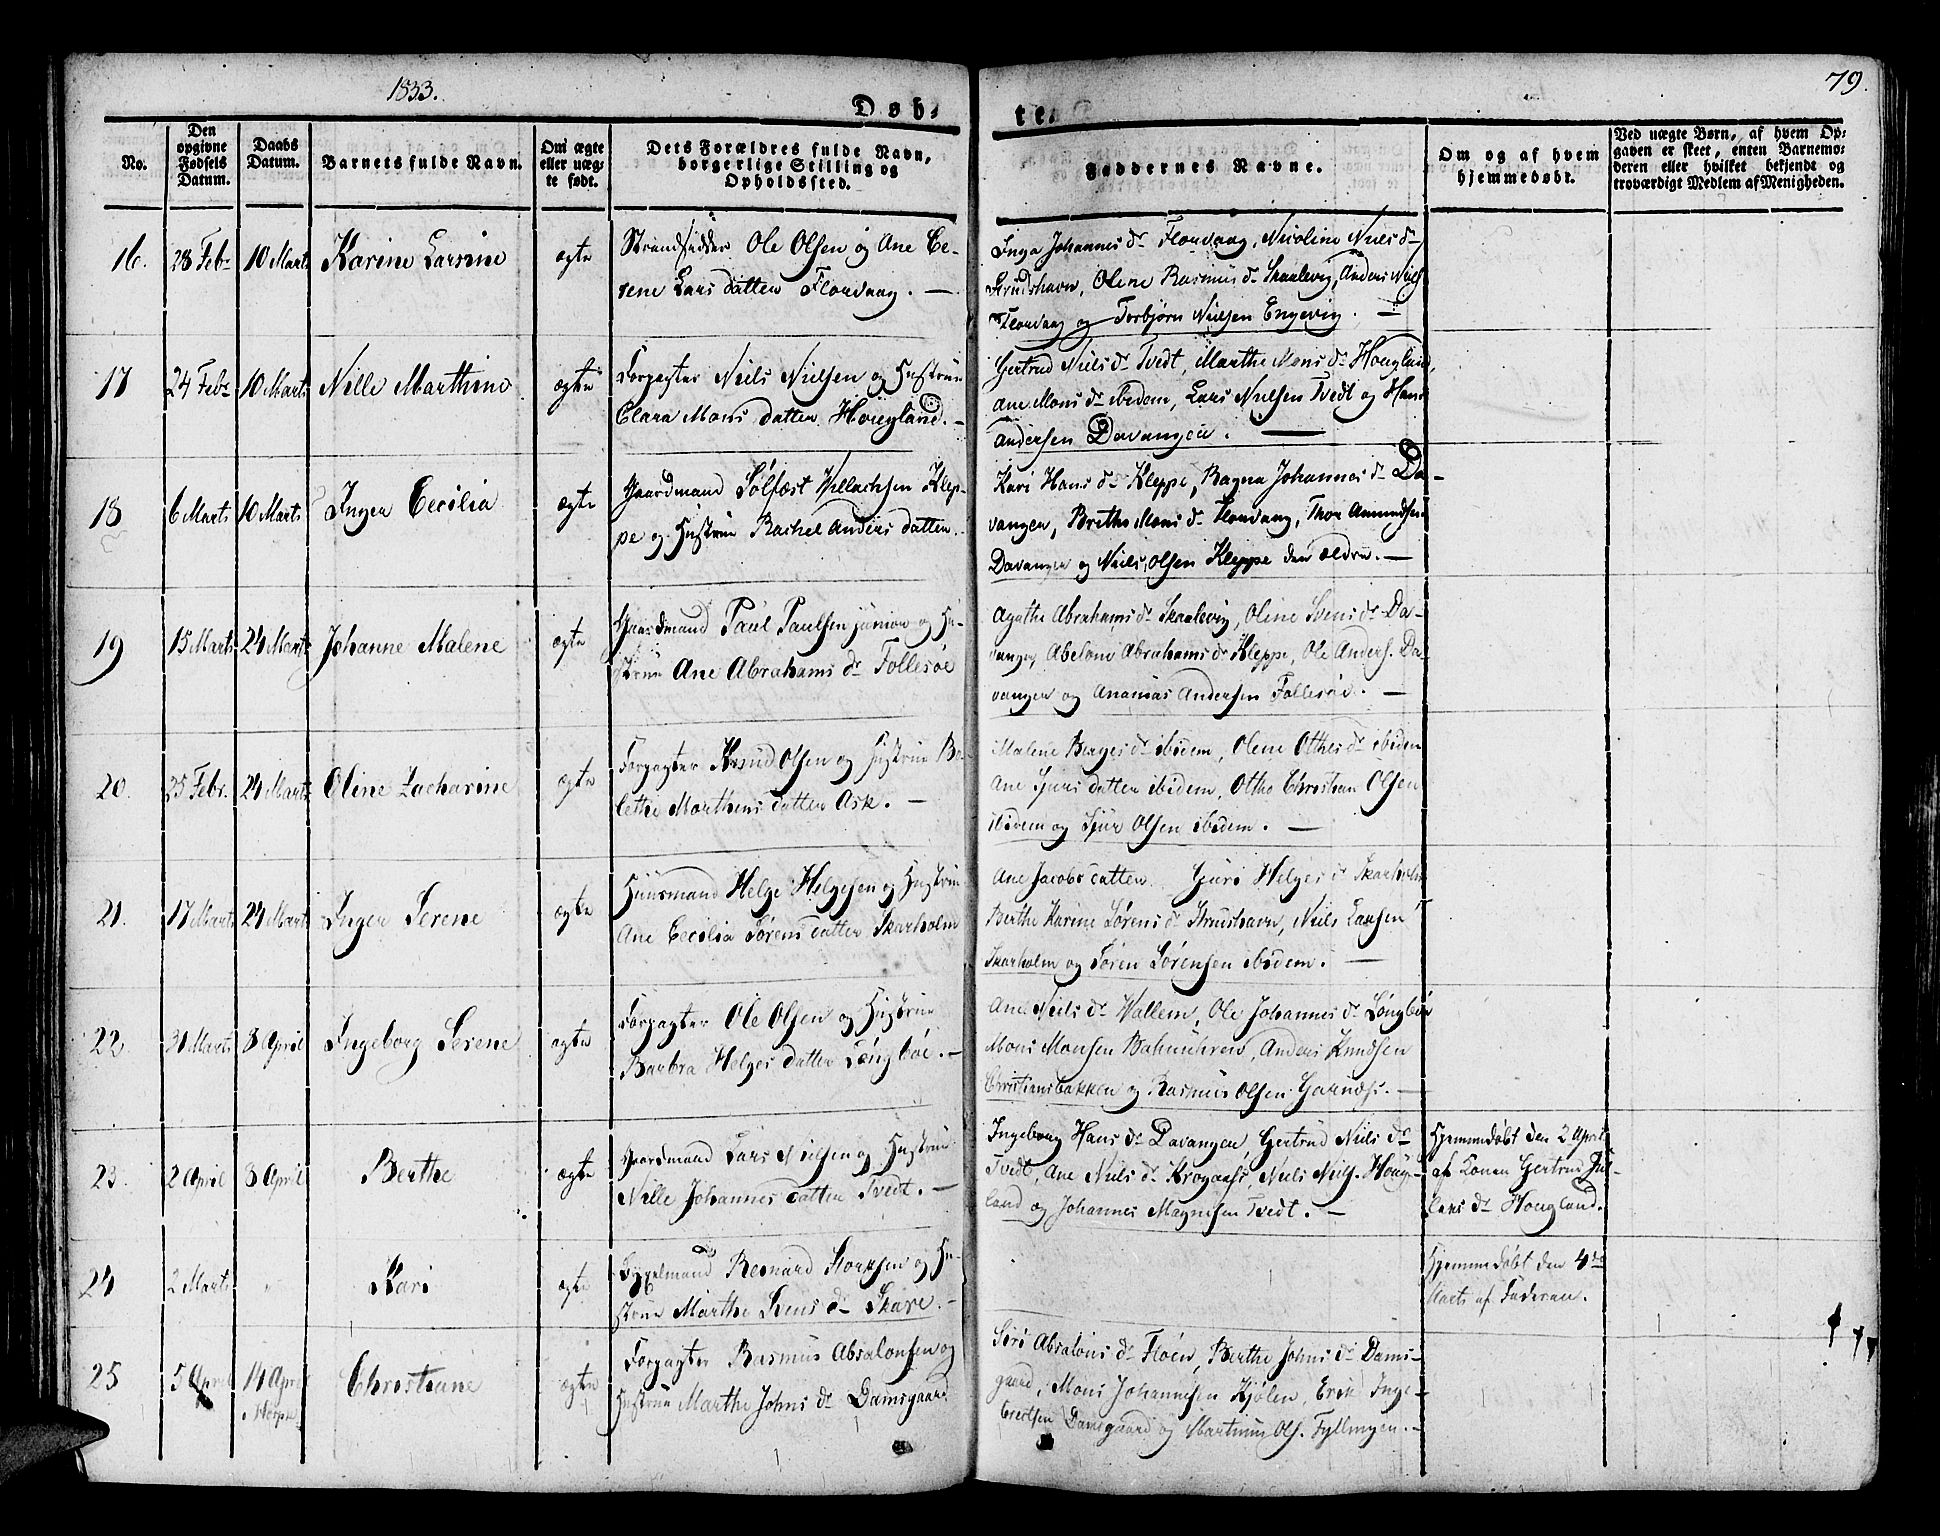 1833.
79.
Døb-
te.
No.
Den opgivne Fødsels Datum.
Daabs Datum.
Barnets fulde Navn.
Om ægte eller uæg-te født.
Dets Forældres fulde Navn, borgerlige Stilling og Opholdssted.
Faddernes Navne.
Om og af hvem hjemmedøbt.
Ved uægte Børn, af hvem Op-
gaven er skeet, enten Barnemo-
deren eller hvilket bekjendt og
troværdigt Medlem af Menigheden.
16. 28 Febr 10 Marts Karine Larsine ægte
Strandsidder Ole Olsen og Ane Ce-
rene Lars datter Florvaag. —
Inga Johannes dr Florvaag, Nicoline Niels dr
Strudshavn, Oline Rasmus dr Skaalevig, Anders Niels
Florvaag og Torbjørn Nielsen Engevig. —
17 24 Febr 10 Marts Nille Marthine ægte
Forpagter Neils Nielsen og Hustrue
Clara Mons datter Hougland. —
Gertrud Niels dr Tvedt, Marthe Mons dr Hougland,
Ane Mons dr ibidem, Lars Nielsen Tvedt og Hans
Andersen Davangen. —
18 6 Marts 10 Marts Inger Cecilia ægte
Gaardmand Sølfæst Willachsen Klep-
pe og Hustrue Rachel Anders datter.
Kari Hans dr Kleppe, Ragna Johannes dr Da-
vangen, Brethe Mons dr Florvaag, Thor Amundsen
Davangen og Niels Olsen Kleppe den ældre. —
19 15 Marts 24 Marts Johanne Malene ægte
Gaardmand Paul Paulsen junior og Hu-
strue Ane Abrahams dr Follesøe
Agathe Abrahams dr Skaalevig, Oline Svens dr Da-
vangen, Abelone Abrahams dr Kleppe, Ole Anders. Da-
vangen og Ananias Andersen Follesøe. —
20. 25 Febr. 24 Marts Oline Zacharine ægte
Forpagter Knud Olsen og Hustrue Be-
lethe Marthens datter Ask. —
Malene Berges dr ibidem, Olene Otthes dr ibidem
Ane Sjurs datter ibidem, Ottho Christian Olsen
ibidem og Sjur Olsen ibidem. —
21. 17 Marts 24 Marts Inger Serene ægte
Huusmand Helge Helgesen og Hustrue
Ane Cecilia Sørens datter Skarholm
Ane Jacobs datter Guro Helges dr Skarholm
Berthe Karine Sørens dr Strudshavn, Niels Larsen
Skarholm og Søren Sørensen ibidem. —
22. 31 Marts 8 April Ingeborg Serene ægte
Forpagter Ole Olsen og Hustrue
Barbra Helges datter Længbøe. —
Ane Neils dr Wallem, Ole Johannes dr Længbøe
Mons Monsen, Anders Knudsen
Christiansbakken og Rasmus Olsen Garnæs. —
23. 2 April 8 April Berthe ægte
Gaardmand Lars Nielsen og Hustrue
Nille Johannes datter Tvedt. —
Ingeborg Hans dr Davangen, Gertrud Niels dr
Tvedt, Ane Niels dr Krogaas, Niels Niels. Houg-
land og Johannes Magnesen Tvedt. —
Hjemmedøbt den 2 April
af Konen Gertrud
dr Hougland.
24 2 Marts " Kari ægte
Bygselmand Bernard Storksen og Hu-
strue Marthe Stens dr Skare. —
Hjemmedøbt den 4de
Marts af Faderen.
25 5 April 14 April Christiane ægte
Forpagter Rasmus Absalonsen og
Hustrue Marthe Johns dr Damsgaard
Siri Absalons dr Fløen, Berthe Johns dr Dams-
gaard, Mons Johannesen Kjølen, Erik Inge-
brectsen Damsgaard og Martinus Ols. Fyllingen. —